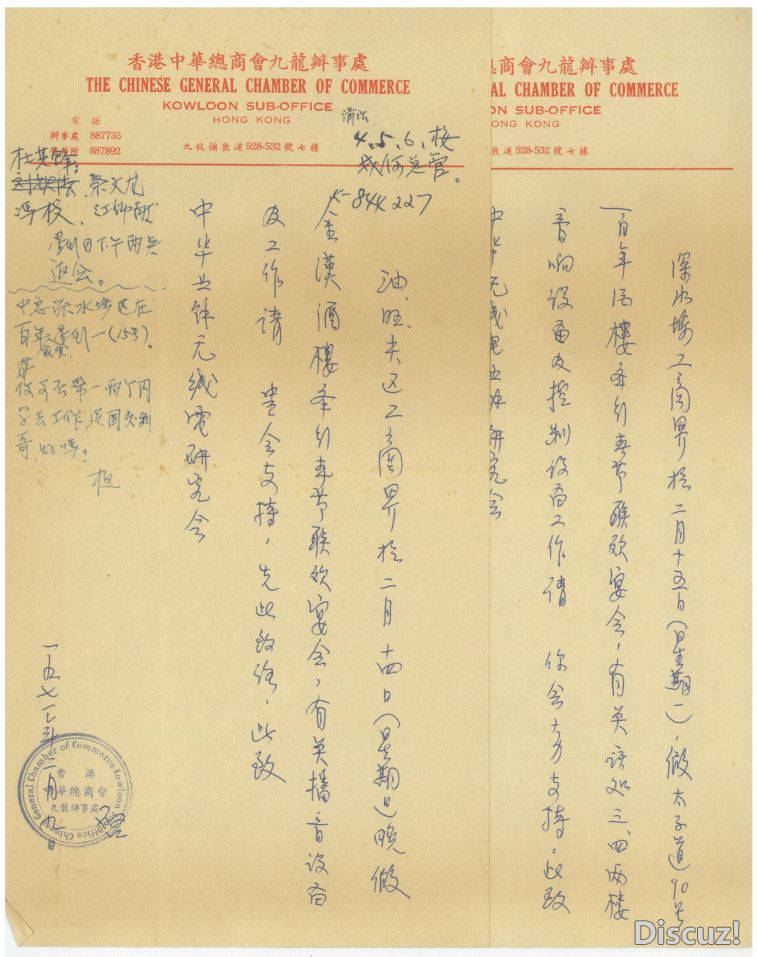 香港中華總商會九龍辦事處
THE CHINESE GENERAL CHAMBER OF COMMERCE
KOWLOON SUB-OFFICE
HONG KONG
電話
辦事處 887735
887892
九龍彌敦道528-532號七樓
4.5.6.樓
或何总管。
K-844227
油、旺、尖区工商界於二月十四日(星期日)晚假
金漢酒樓举行春节联欢宴会,有关播音设备
及工作请 贵会支持,先此致谢,此致
中华业余无线电研究会
一九七一年二月九日
杜英
蔡文
返会。
中总深水埗区在
百年
(15号)。
你可否帶一两个同
学去工作,
好嗎?
Chinese General Chamber of Commerce Kowloon Sub-office
香港
華總商會
九龍辦事處
總商會九龍辦事處
AL CHAMBER OF COMMERCE
ON SUB-OFFICE
ONG KONG
敦道528-532號七樓
深水埗工商界於二月十五日(星期一),假太子道90号
百年酒樓举行春节联欢宴会,有关该处三、四两樓
音响设备及控制设备工作请 你会大力支持,此致
中华无线电业余研究会
Discuz!